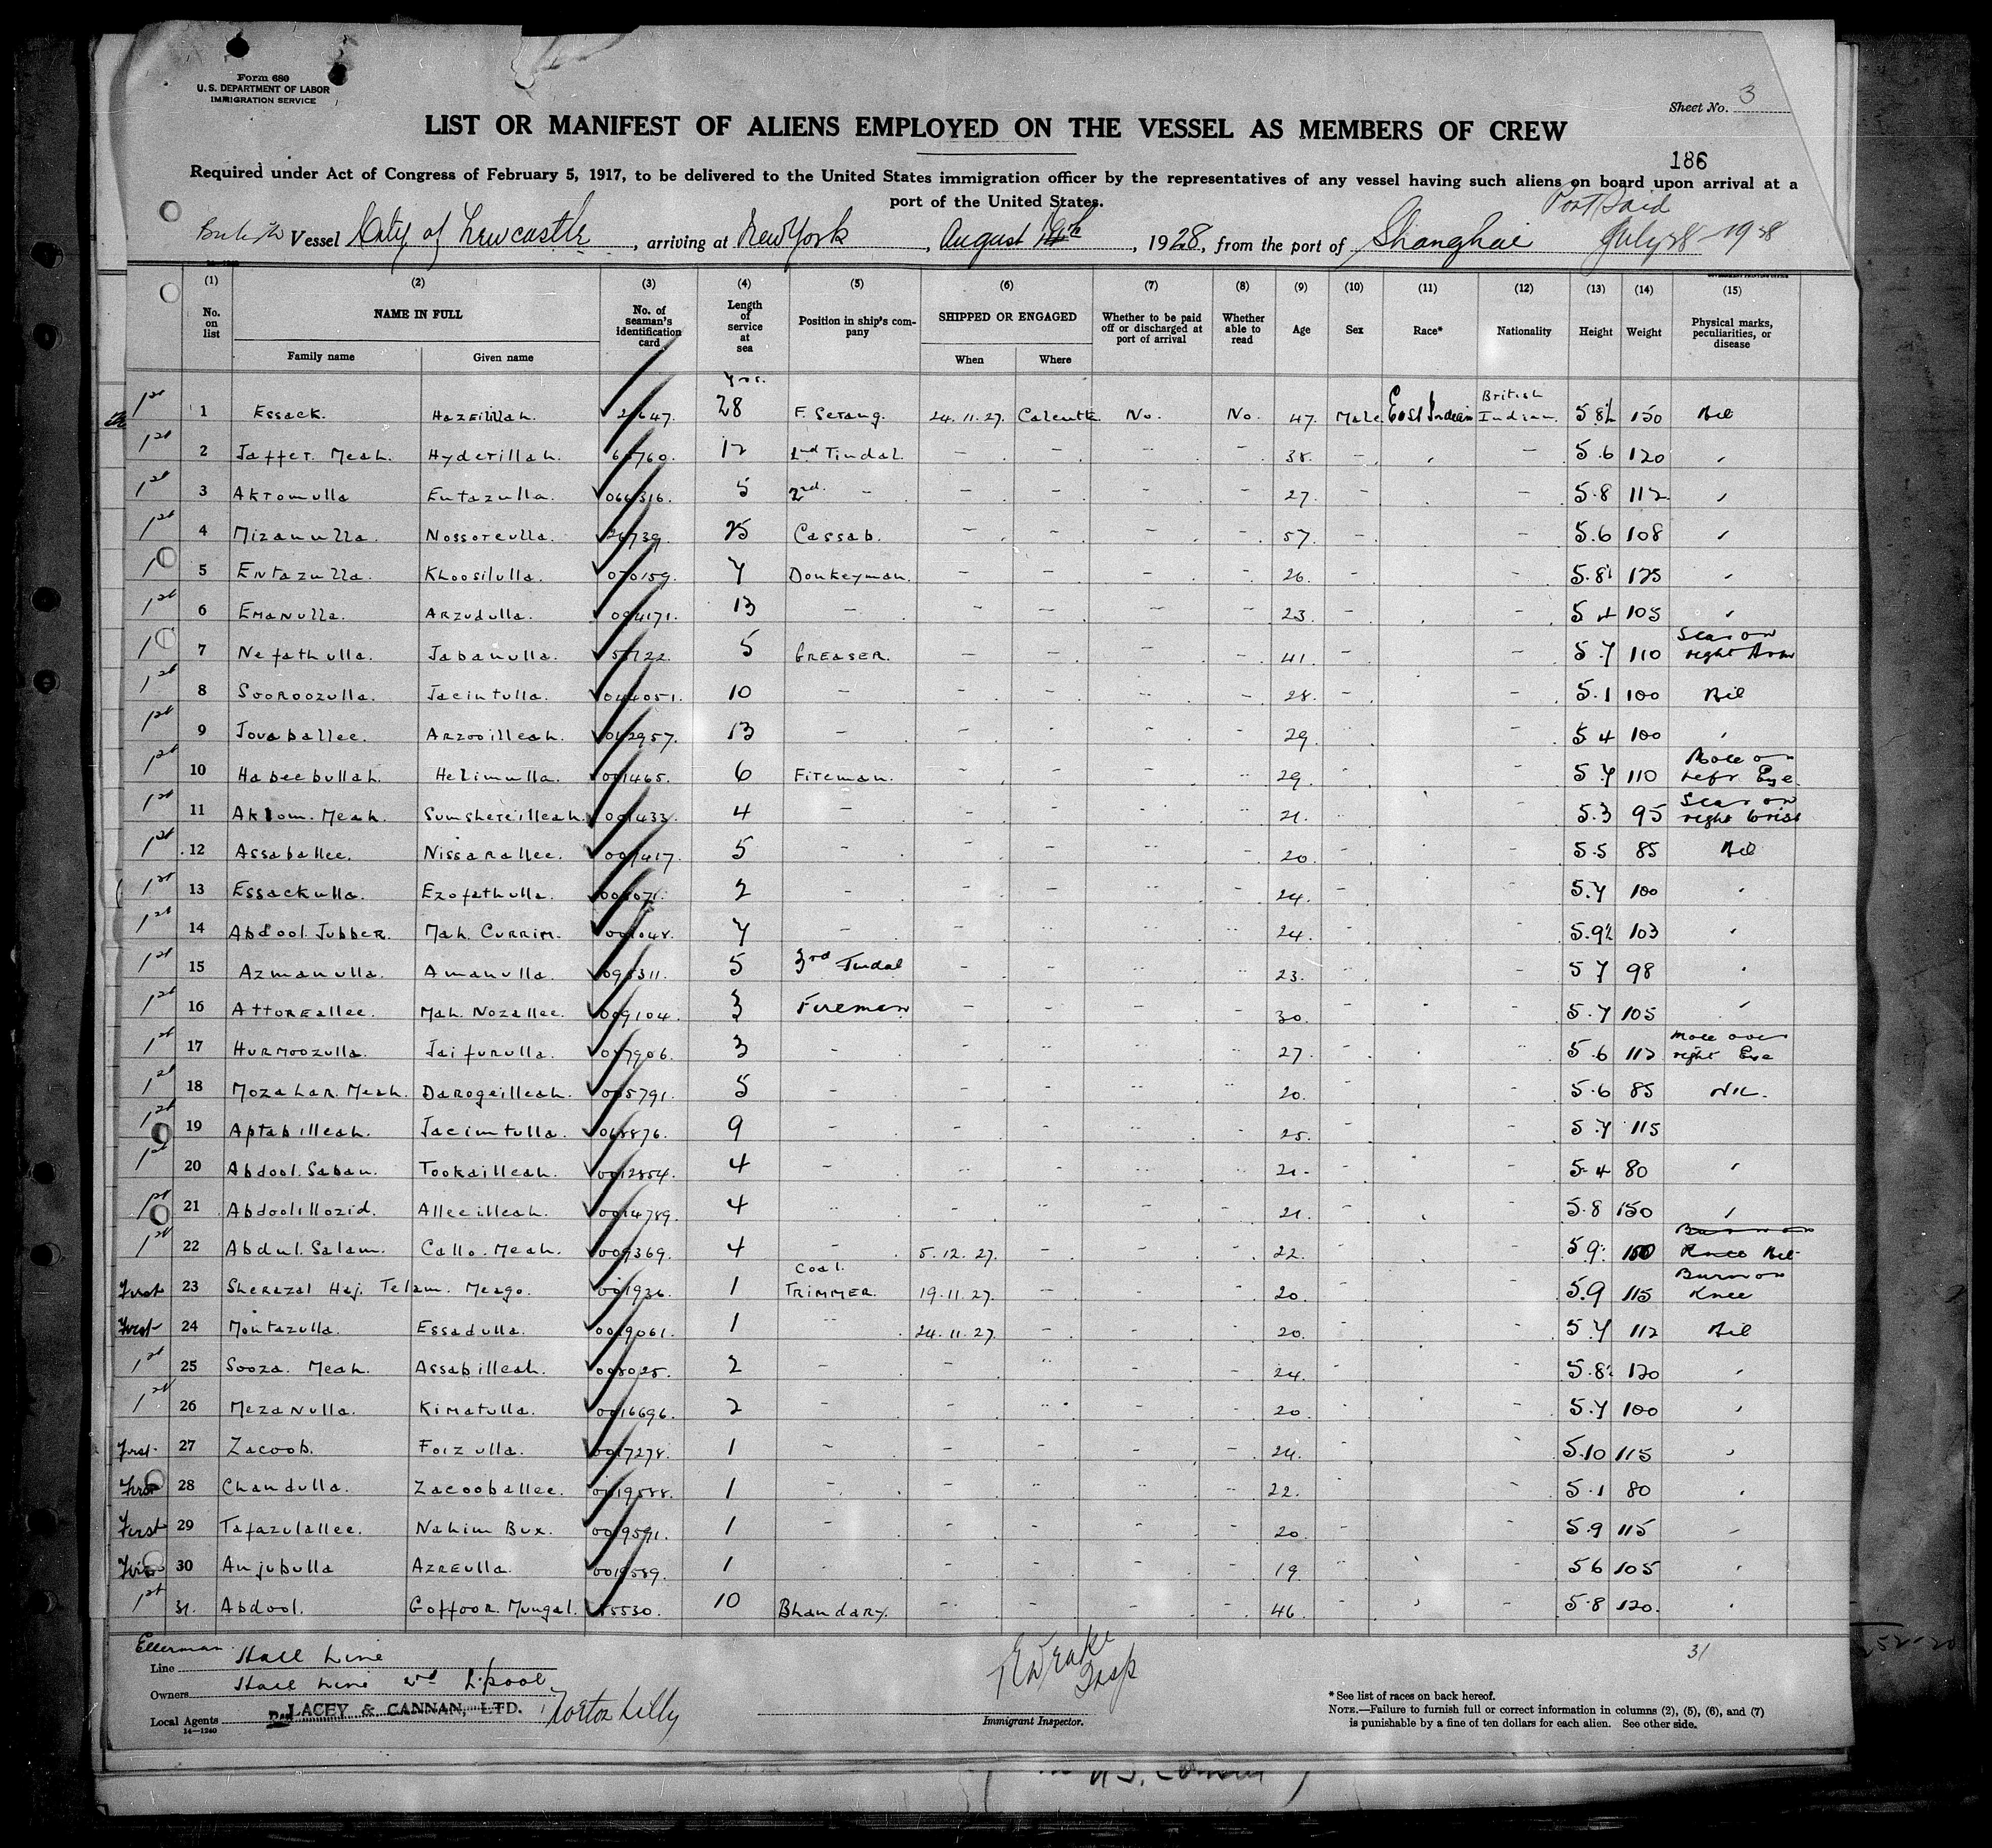 Form 680
U. S. DEPARTMENT OF LABOR
IMMIGRATION SERVICE
Sheet No. 3
LIST OR MANIFEST OF ALIENS EMPLOYED ON THE VESSEL AS MEMBERS OF CREW
186
Required under Act of Congress of February 5, 1917, to be delivered to the United States immigration officer by the representatives of any vessel having such aliens on board upon arrival at a
port of the United States.
Port Said
British Vessel City of Newcastle, arriving at New York, August, 1928, from the port of Shanghai July 28 1928
(1) (2) (3) (4) (5) (6) (7) (8) (9) (10) (11) (12) (13) (14) (15)
No. on list NAME IN FULL No. of seaman's identification card Length of service at sea Position in ship's company SHIPPED OR ENGAGED Whether to be paid off or discharged at port of arrival Whether able to read Age Sex Race* Nationality Height Weight Physical marks, peculiarities, or disease
Family name Given name When Where
yrs.
1st 1 Essack. Hazeillah. 28 F. Serang. 24.11.27. Calcutta No. No. 47. Male East Indian British Indian. 5 8½ 150 Nil
1st 2 Jaffer. Meah. Hyderillah. 12 2nd Tindal. - - - - 38. - - 5.6 120
1st 3 Akromulla Entazulla. 066316. 5 2nd. - - - - - 27. - - 5.8 112
1st 4 Mizanulla. Nossoreulla. 25 Cassab. - - - - 57. - - 5.6 108
5 Entazulla. Khoosilulla. 070159. 7 Donkeyman. - - - - 26. - - 5.8½ 125
1st 6 Emanulla. Arzudulla. 094171. 13 - - - - - 23. - - 5 4 105
7 Nefathulla. Jabanulla. 5 Greaser. - - - - 41. - - 5.7 110 Scar on right Arm
1st 8 Sooroozulla. Jacintulla. 044051. 10 - - - - - 28. - - 5.1 100 Nil
1st 9 Jovaballee. Arzooilleah. 042957. 13 - - - - - 29. - - 5 4 100
1st 10 Habeebullah. Helimulla. 001465. 6 Fireman. - - - - 29. - - 5 7 110 Mole on left Eye.
1st 11 Aklom. Meah. Sumshereilleah. 001433. 4 - - - - - 21. - - 5.3 95 Scar on right wrist
1st 12 Assaballee. Nissarallee. 001417. 5 - - - - - 20. - - 5.5 85 Nil
1st 13 Essackulla. Ezofathulla. 2 - - - - - 24. - - 5.7 100
1st 14 Abdool. Jubber. Mah. Currim. 001048. 7 - - - - - 24. - - 5.9½ 103
1st 15 Azmanulla. Amanulla. 5 3rd Tindal - - - - 23. - - 5 7 98
1st 16 Attoreallee. Mah. Nozallee. 009104. 3 Fireman - - - - 30. - - 5.7 105
1st 17 Hurmoozulla. Jaifurulla. 3 - - - - - 27. - - 5.6 112 Mole over right Eye
1st 18 Mozahar. Meah. Darogeilleah. 005791. 5 - - - - - 20. - - 5.6 85 Nil.
1st 19 Aptabilleah. Jacimtulla. 068876. 9 - - - - - 25. - - 5.7 115
1st 20 Abdool. Saban. Tookailleah. 0012854. 4 - - - - - 21. - - 5.4 80
1st 21 Abdoolillozid. Alleeilleah. 0014789. 4 - - - - - 21. - - 5.8 150
1st 22 Abdul. Salam. Callo. Meah. 009369. 4 - 5.12.27. - - - 22. - - 5 9. 100 Burn on Knee Nil
First 23 Sherazal Haj. Telam. Meago. 001936. 1 Coal. Trimmer. 19.11.27. - - - 20. - - 5.9 115 Burn on Knee
First 24 Montazulla. Essadulla. 0019061. 1 - 24.11.27. - - - 20. - - 5.7 112 Nil
1st 25 Sooza. Meah. Assabilleah. 008025. 2 - - - - - 24. - - 5.8½ 120
1st 26 Mezanulla. Kimatulla. 0016696. 2 - - - - - 20. - - 5.7 100
First 27 Zacoob. Foizulla. 0017278. 1 - - - - - 24. - - 5.10 115
First 28 Chandulla. Zacooballee. 0019588. 1 - - - - - 22. - - 5.1 80
First 29 Tafazulallee. Nahim Bux. 0019591. 1 - - - - - 20. - - 5.9 115
First 30 Anjubulla Azreulla. 0019589. 1 - - - - - 19. - - 5 6 105
1st 31. Abdool. Goffoor. Mungal. 10 Bhandary. - - - - 46. - - 5.8 120.
Ellerman
Line Hall Line
Owners Hall Line L'pool.
Local Agents LACEY & CANNAN, LTD. Norton Lilly
14—1240
Immigrant Inspector.
31
* See list of races on back hereof.
NOTE.—Failure to furnish full or correct information in columns (2), (5), (6), and (7)
is punishable by a fine of ten dollars for each alien. See other side.